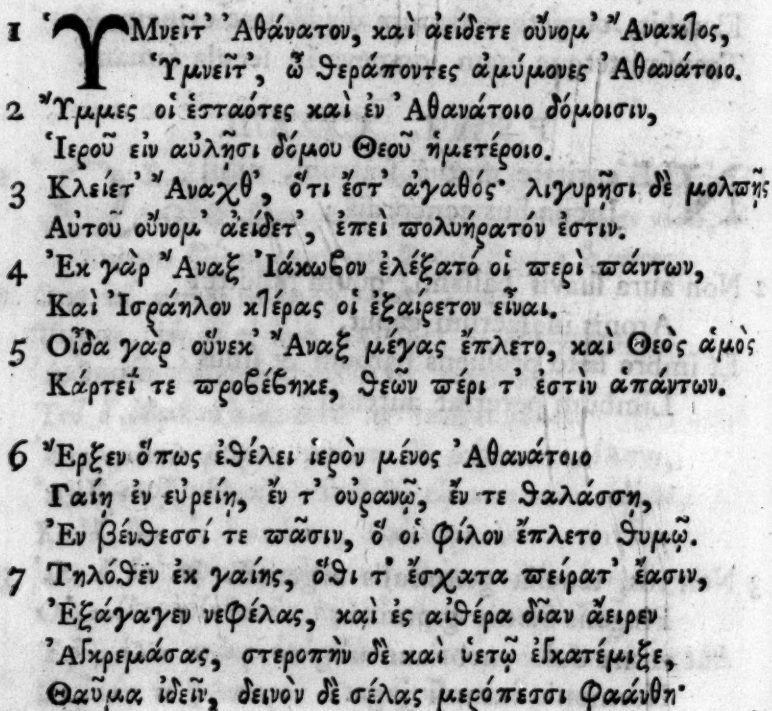 1 Ὑμνεῖτ' Ἀθάνατον, καὶ ἀείδετε οὔνομ' Ἄνακτος,
Ὑμνεῖτ', ὦ θεράποντες ἀμύμονες Ἀθανάτοιο.
2 Υ̓́μμες οἱ ἑσταότες καὶ ἐν Ἀθανάτοιο δόμοισιν,
Ἱεροῦ εἰν αὐλῇσι δόμου Θεοῦ ἡμετέροιο.
3 Κλείετ' Ἄναχθ', ὅτι ἔστ' ἀγαθός· λιγυρῇσι δὲ μολπῇς
Αὐτοῦ οὔνομ' ἀείδετ', ἐπεὶ πολυήρατόν ἐστιν.
4 Ἐκ γὰρ Ἄναξ Ἰάκωβον ἐλέξατό οἱ περὶ πάντων,
Καὶ Ἰσράηλον κτέρας οἱ ἐξαίρετον εἶναι.
5 Οἶδα γὰρ οὕνεκ' Ἄναξ μέγας ἔπλετο, καὶ Θεὸς ἁμὸς
Κάρτεΐ τε προβέβηκε, θεῶν πέρι τ' ἐστὶν ἁπάντων.
6 Ἔρξεν ὅπως ἐθέλει ἱερὸν μένος Ἀθανάτοιο
Γαίῃ ἐν εὐρείῃ, ἔν τ' οὐρανῷ, ἔν τε θαλάσσῃ,
Ἐν βένθεσσί τε πᾶσιν, ὅ οἱ φίλον ἔπλετο θυμῷ.
7 Τηλόθεν ἐκ γαίης, ὅθι τ' ἔσχατα πείρατ' ἔασιν,
Ἐξάγαγεν νεφέλας, καὶ ἐς αἰθέρα δῖαν ἄειρεν
Ἀγκρεμάσας, στεροπὴν δὲ καὶ ὑετῷ ἐγκατέμιξε,
Θαῦμα ἰδεῖν, δεινὸν δὲ σέλας μερόπεσσι φαάνθη·